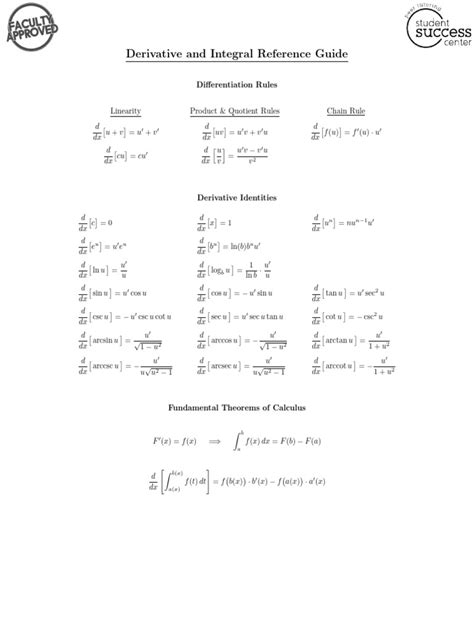 FACULTY
APPROVED
peer tutoring
student
SUCCESS
center
Derivative and Integral Reference Guide
Differentiation Rules
Linearity Product & Quotient Rules Chain Rule
d/dx[u + v] = u′ + v′ d/dx[uv] = u′v + v′u d/dx[f(u)] = f′(u) · u′
d/dx[cu] = cu′ d/dx[u/v] = (u′v − v′u)/v²
Derivative Identities
d/dx[c] = 0 d/dx[x] = 1 d/dx[uⁿ] = nuⁿ⁻¹u′
d/dx[eᵘ] = u′eᵘ d/dx[bᵘ] = ln(b)bᵘu′
d/dx[ln u] = u′/u d/dx[log_b u] = 1/(ln b) · u′/u
d/dx[sin u] = u′ cos u d/dx[cos u] = −u′ sin u d/dx[tan u] = u′ sec² u
d/dx[csc u] = −u′ csc u cot u d/dx[sec u] = u′ sec u tan u d/dx[cot u] = −csc² u
d/dx[arcsin u] = u′/√(1 − u²) d/dx[arccos u] = −u′/√(1 − u²) d/dx[arctan u] = u′/(1 + u²)
d/dx[arccsc u] = −u′/(u√(u² − 1)) d/dx[arcsec u] = u′/(u√(u² − 1)) d/dx[arccot u] = −u′/(1 + u²)
Fundamental Theorems of Calculus
F′(x) = f(x) ⟹ ∫ₐᵇ f(x) dx = F(b) − F(a)
d/dx[∫_{a(x)}^{b(x)} f(t) dt] = f(b(x)) · b′(x) − f(a(x)) · a′(x)